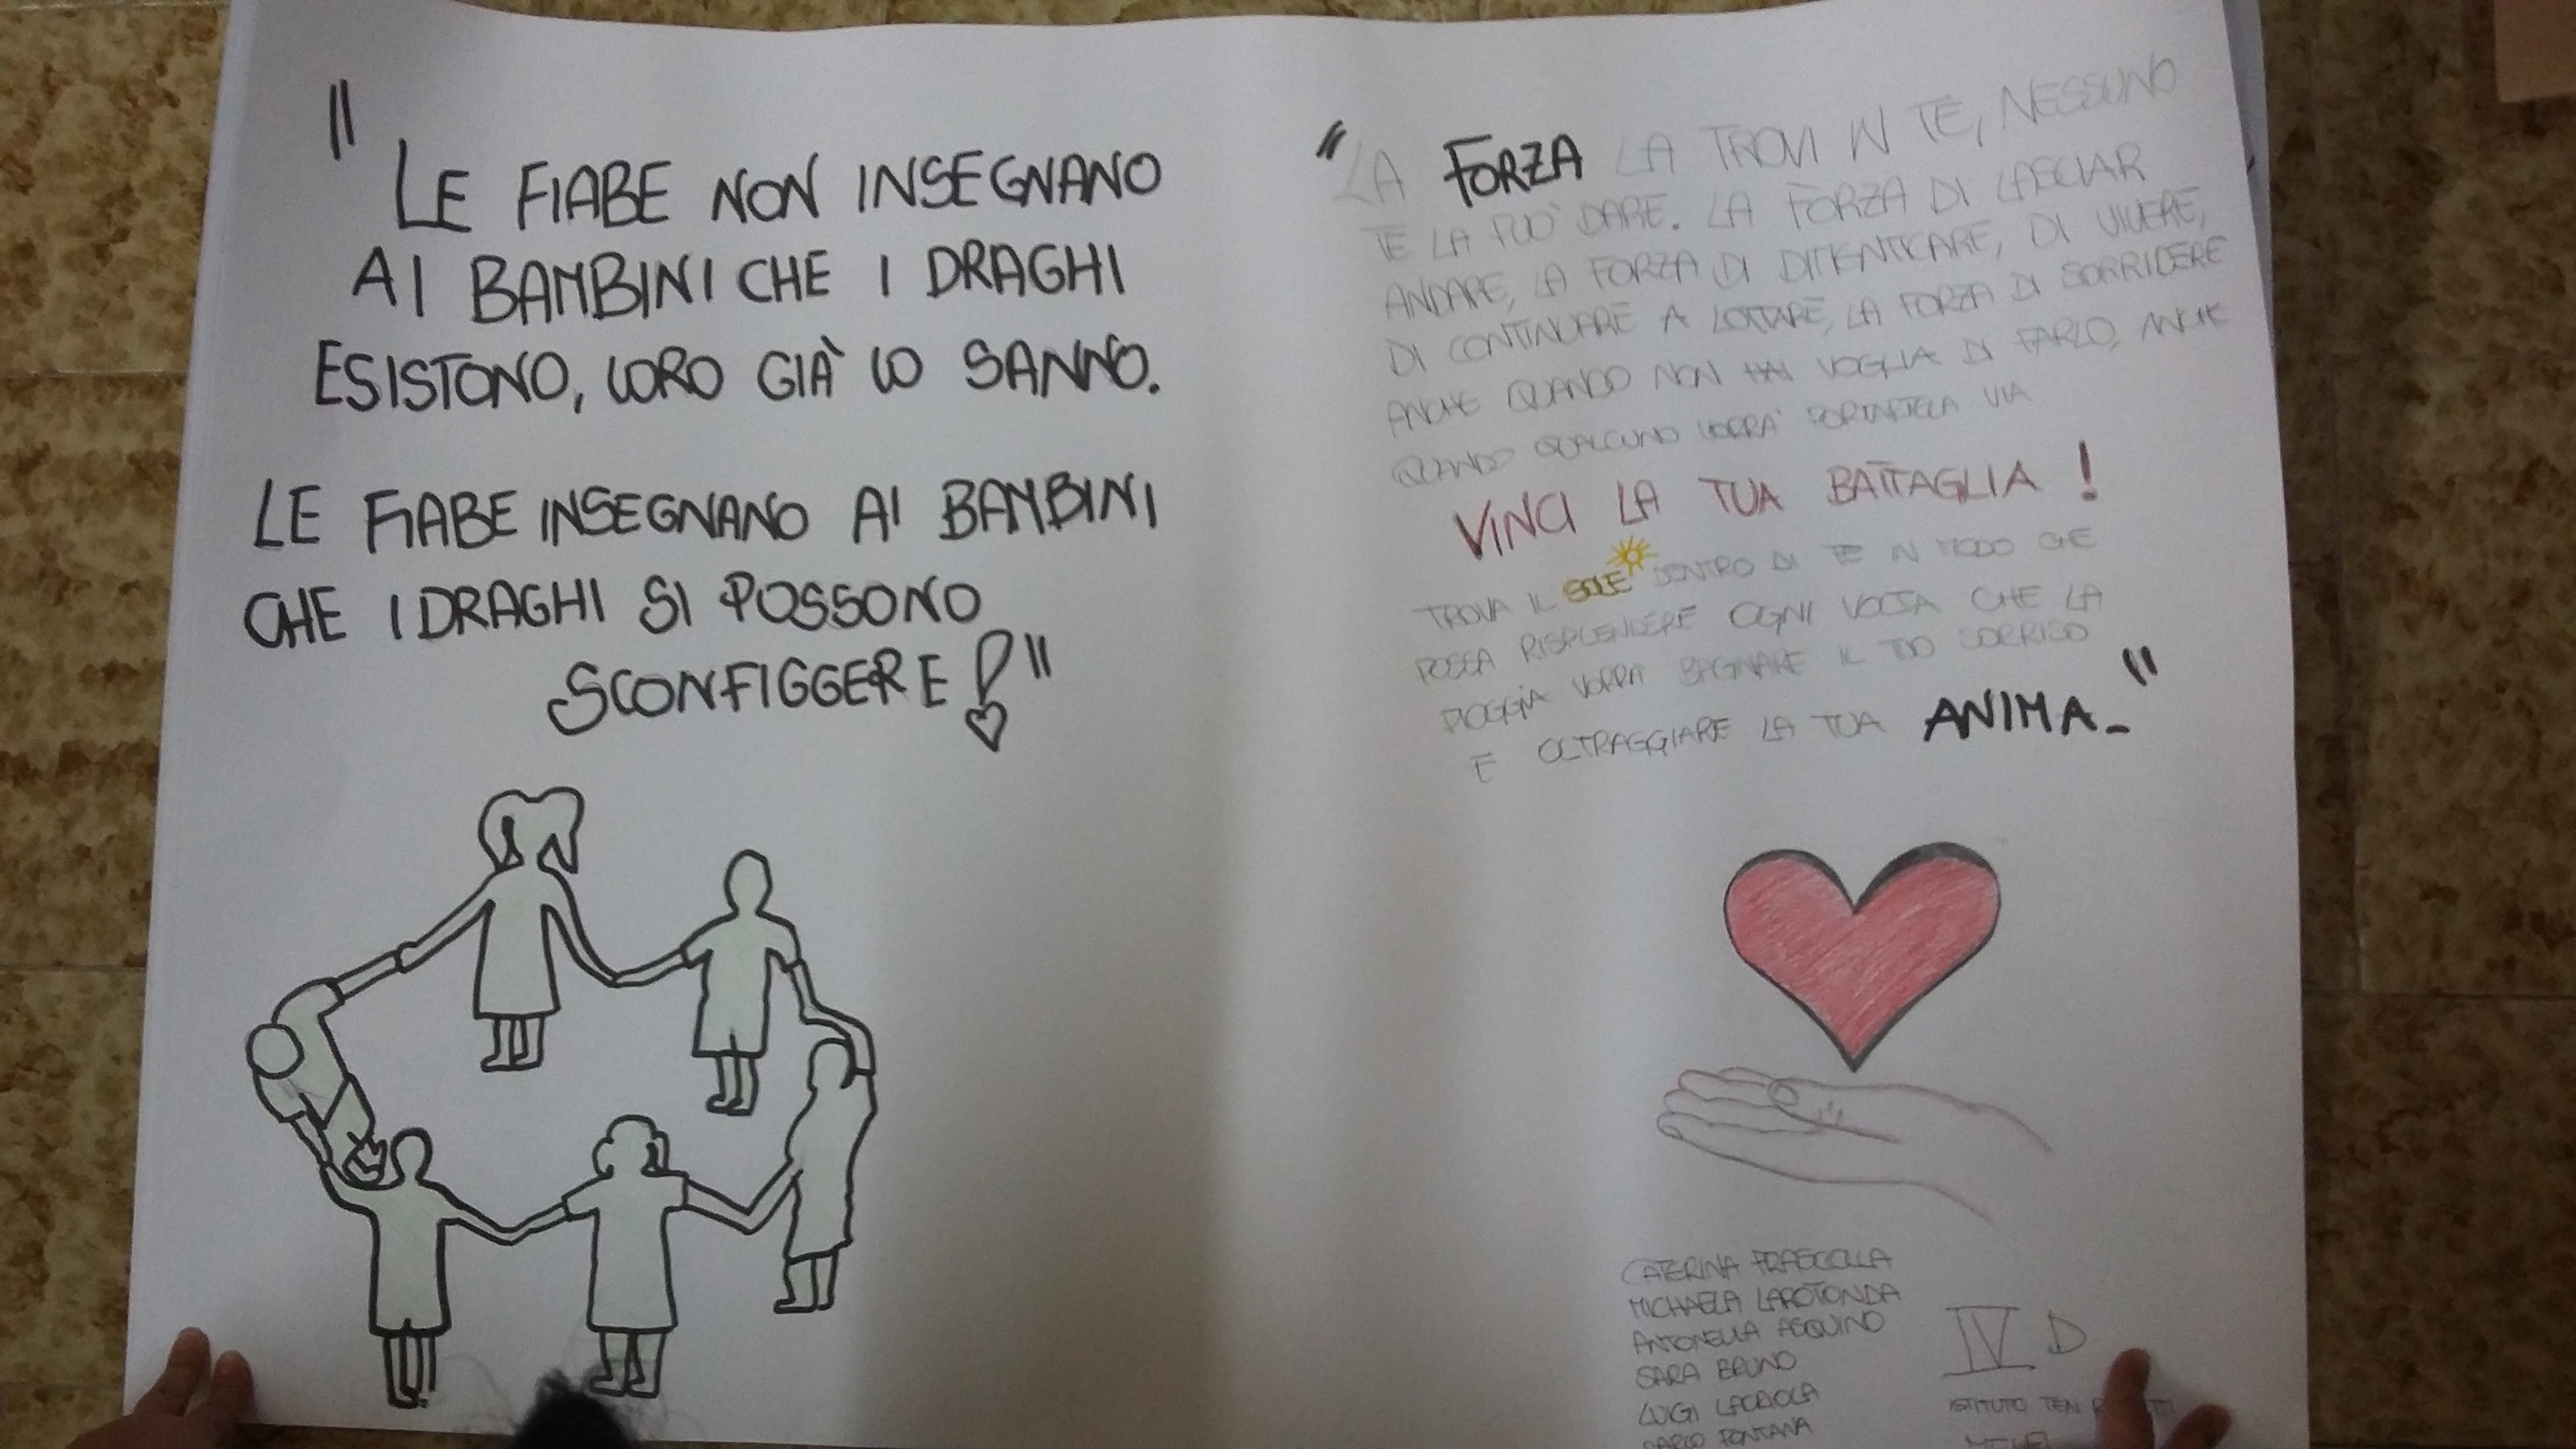 "LE FIABE NON INSEGNANO
AI BAMBINI CHE I DRAGHI
ESISTONO, LORO GIÀ LO SANNO.
LE FIABE INSEGNANO AI BAMBINI
CHE I DRAGHI SI POSSONO
SCONFIGGERE!"
"LA FORZA LA TROVI IN TE, NESSUNO
TE LA PUÒ DARE. LA FORZA DI LASCIAR
ANDARE, LA FORZA DI DIMENTICARE, DI VIVERE,
DI CONTINUARE A LOTTARE, LA FORZA DI SORRIDERE
ANCHE QUANDO NON HAI VOGLIA DI FARLO, ANCHE
QUANDO QUALCUNO VORRÀ PORTARTELA VIA
VINCI LA TUA BATTAGLIA!
TROVA IL SOLE DENTRO DI TE IN MODO CHE
POSSA RISPLENDERE OGNI VOLTA CHE LA
PIOGGIA VORRÀ BAGNARE IL TUO SORRISO
E OLTRAGGIARE LA TUA ANIMA_"
CATERINA FRASCOLLA
MICHAELA LAROTONDA
ANTONELLA ASQUINO
SARA BRUNO
LUIGI
FONTANA
IV D
ISTITUTO TEN